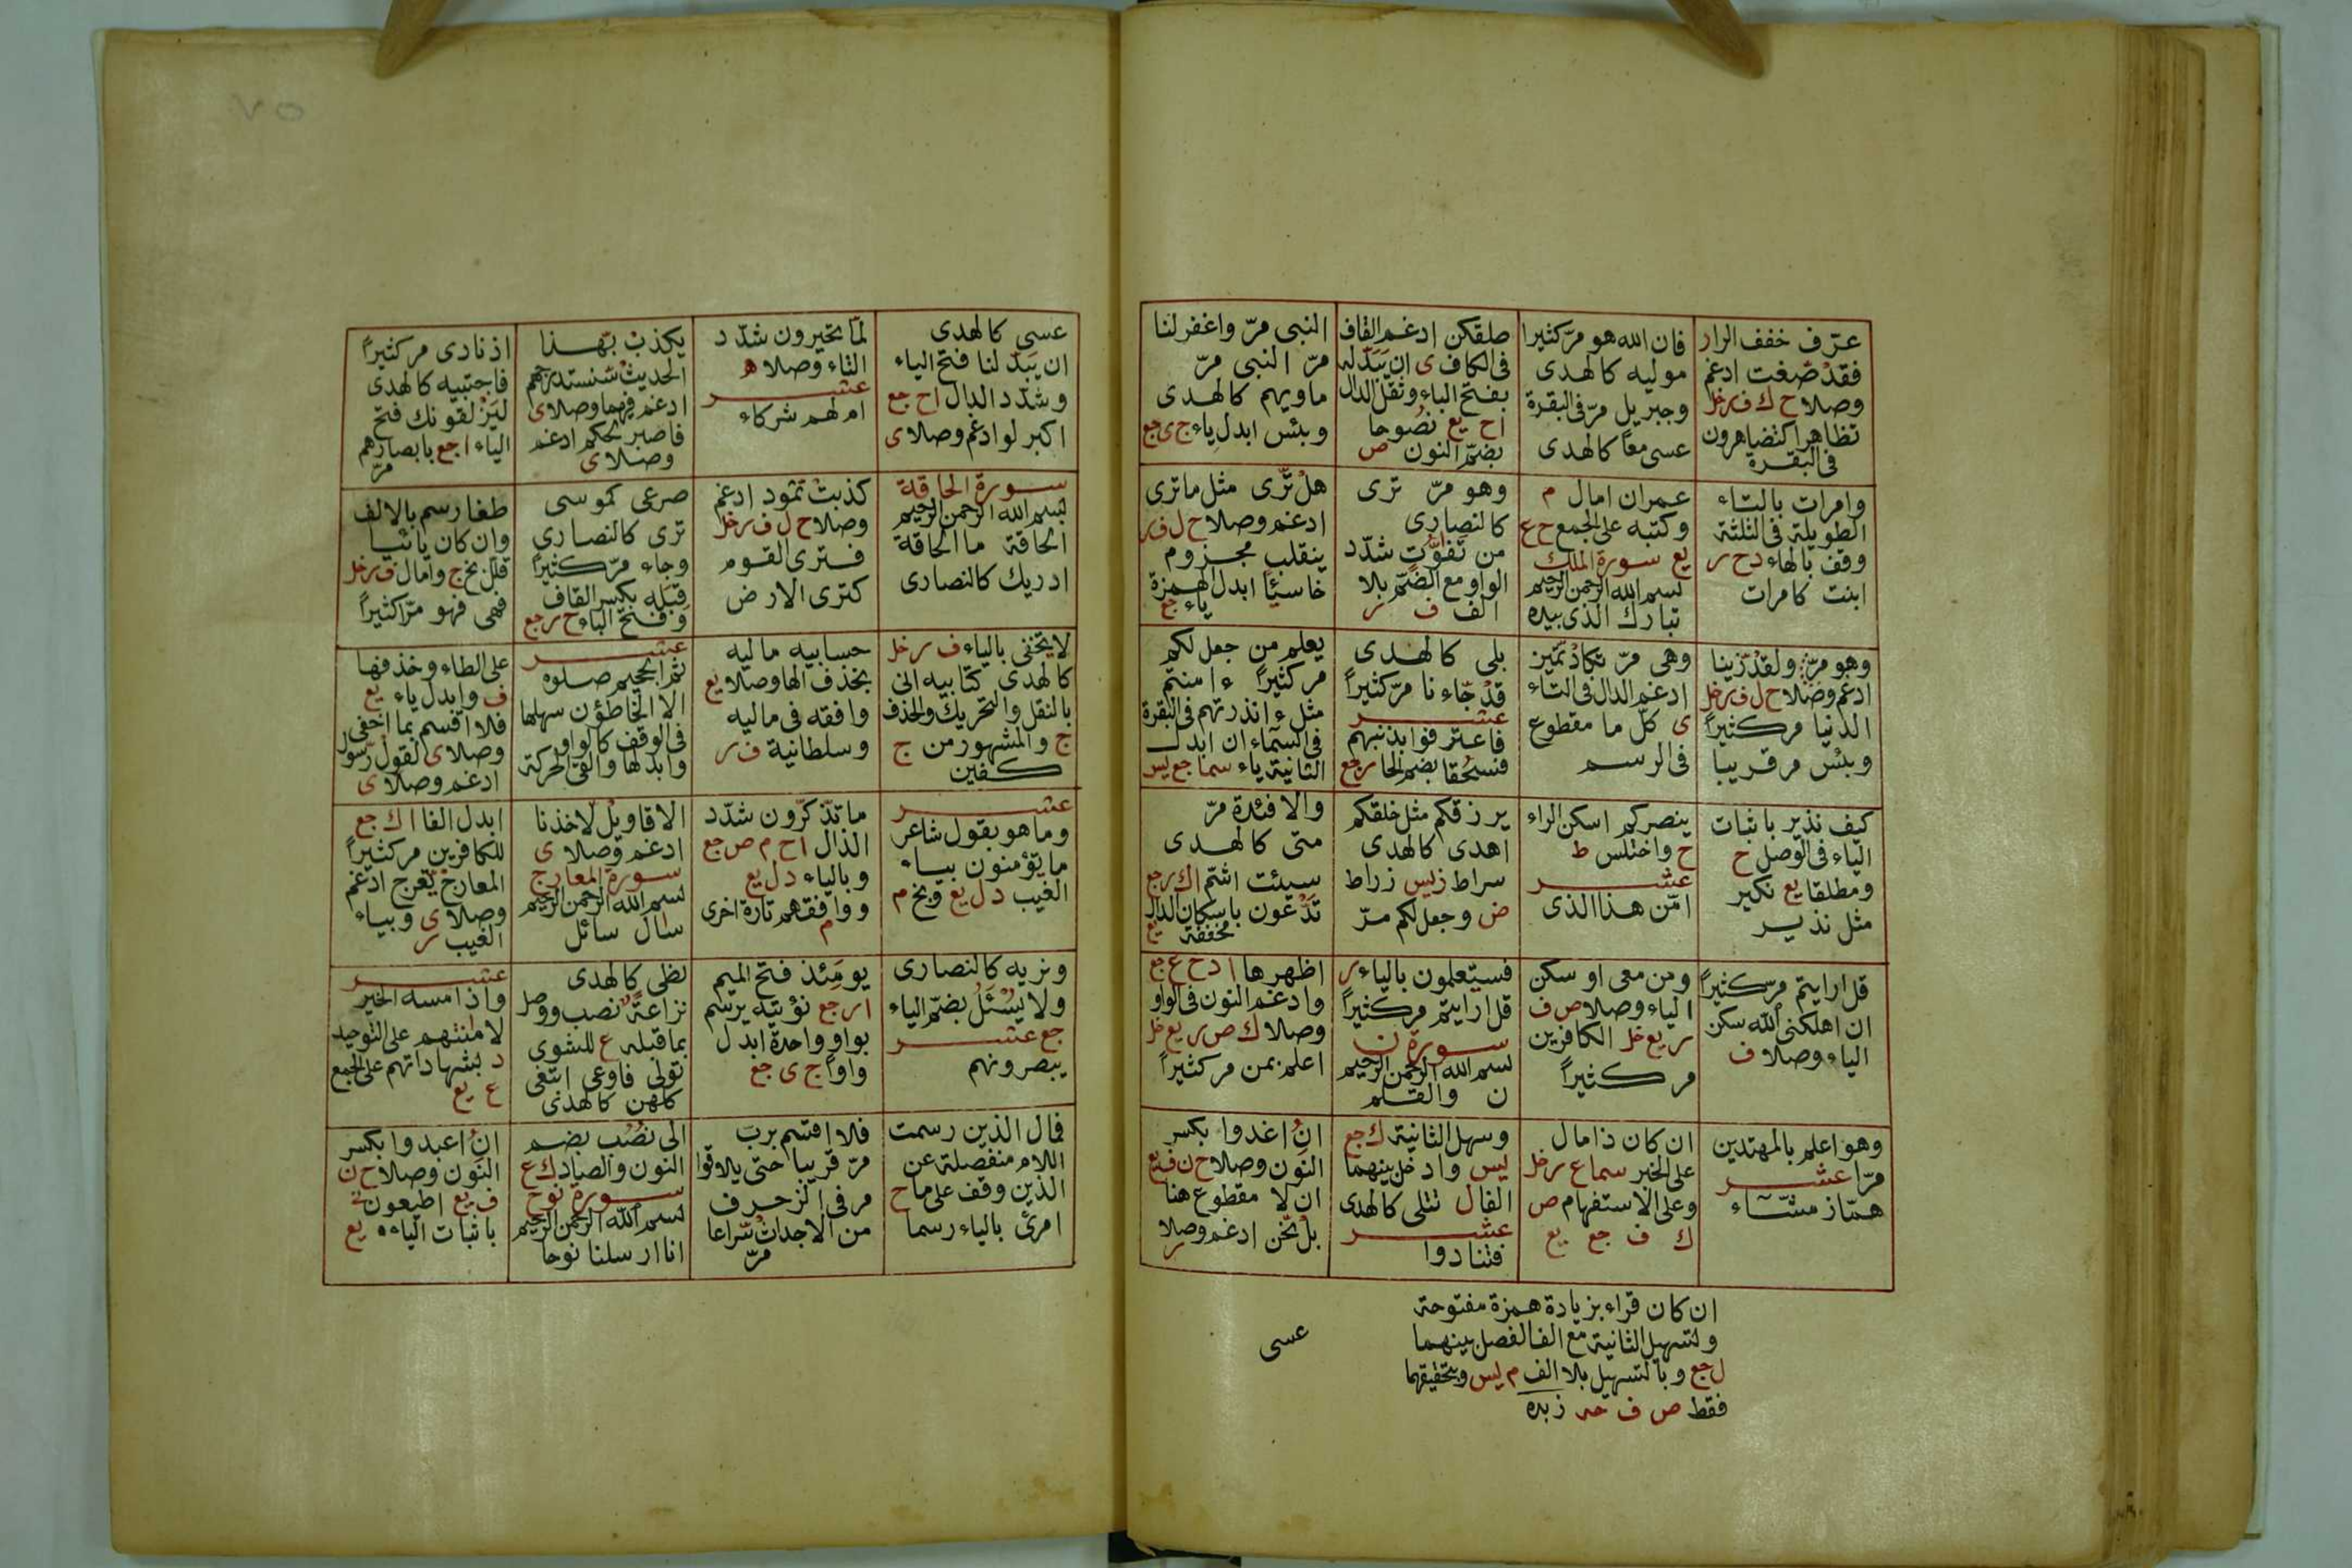 عرّف خفف الرار
فقد صّغت ادغم
وصلا ح ك ف ر خل
تظاهرا كتضاهرون
فى البقرة
فان الله هو مرّ كثيرا
موليه كالهدى
وجبريل مرّ فى البقرة
عسى معًا كالهدى
طلقكن ادغم القاف
فى الكاف ى ان يبدّله
بفتح الباء وثقل الدال
اح يع نصُوحا
بضمّ النون ص
النبى مرّ واغفر لنا
مرّ النبى مرّ
ماويهم كالهدى
وبئس ابدل ياء ج ى جع
وامرات بالتاء
الطويلة فى الثلثة
وقف بالهاء د ح ر
ابنت كامرات
عمران امال م
وكتبه على الجمع ح ع
يع سورة الملك
بسم الله الرحمن الرحيم
تبارك الذى بيده
وهو مرّ ترى
كالنصارى
من تفوّت شدّد
الواو مع الضمّ بلا
الف ف ر
هل تّرى مثل ما ترى
ادغم وصلا ح ل ف ر
ينقلب مجزوم
خاسئًا ابدل الهمزة
ياء جع
وهو مرّ ولقد زّينا
ادغم وصلا ح ل ف ر خل
الدنيا مر كثيراً
وبئس مر قريبا
وهى مرّ تكاد تّميز
ادغم الدال فى التاء
ى كلّ ما مقطوع
فى الرسم
بلى كالهدى
قد جّاءنا مرّ كثيراً
عشر
فاعترفوا بذنبهم
فسحُقا بضم الحا ر جع
يعلم من جعل لكم
مر كثيراً ءامنتم
مثل ءانذرتهم فى البقرة
فى السماء ان ابدل
الثانية ياء سما جع ليس
كيف نذير باثبات
الياء فى الوصل ح
ومطلقا يع نكير
مثل نذير
ينصركم اسكن الراء
ح واختلس ط
عشر
امّن هذا الذى
يرزقكم مثل خلقكم
اهدى كالهدى
سراط ز ليس زراط
ض وجعل لكم مرّ
والافئدة مرّ
متى كالهدى
سيئت اشتم اك ر جع
تدْعون باسكان الدال
مخففة يع
قل ارايتم مرّ كثيراً
ان اهلكنى الله سكن
الياء وصلا ف
ومن معى او سكن
الياء وصلا ص ف
ر يع خل الكافرين
مر كثيراً
فسيعلمون بالياء ر
قل ارايتم مر كثيراً
سورة ن
بسم الله الرحمن الرحيم
ن والقلم
اظهرها ا د ح ع جع
وادغم النون فى الواو
وصلا ك ص ر يع خل
اعلم بمن مر كثيراً
وهو اعلم بالمهتدين
مرّا عشر
همّاز مشّاء
ان كان ذا مال
على الخبر سما ع ر خل
وعلى الاستفهام ص
ك ف جع يع
وسهل الثانية ك جع
ليس وادخل بينهما
الفا ل تتلى كالهدى
عشر
فتنادوا
انِ اغدوا بكسر
النون وصلا ح ن ف يع
ان لا مقطوع هنا
بل نّحن ادغم وصلا
ر
ان كان قراء بزيادة همزة مفتوحة
ولتسهيل الثانية مع الفا لفصل بينهما
ل جع وبالتسهيل بلا الف م ليس وبتحقيقهما
فقط ص ف حد زبده
عسى
٧٥
عسى كالهدى
ان يبدّلنا فتح الباء
وشدّد الدال اح جع
اكبر لو ادغم وصلا ى
لمّا تخيرون شدّد
التاء وصلا ه
عشر
ام لهم شركاء
يكذب بّهذا
الحديث سّنستدرجهم
ادغم فيهما وصلا ى
فاصبر لّحكم ادغم
وصلا ى
اذ نادى مر كثيراً
فاجتبيه كالهدى
ليَزلقونك فتح
الياء ا جع بابصارهم
مرّ
سورة الحاقة
بسم الله الرحمن الرحيم
الحاقة ما الحاقة
ادريك كالنصارى
كذبت ثمود ادغم
وصلا ح ل ف ر خل
فترى القوم
كترى الارض
صرعى كموسى
ترى كالنصارى
وجاء مرّ كثيراً
قِبَله بكسر القاف
وفتح الباء ح ر جع
طغا رسم بالالف
وان كان يائيا
قلل بخ ج وامال ف ر خل
فهى فهو مرّا كثيراً
لا يخفى بالياء ف ر خل
كالهدى كتابيه انى
بالنقل والتحريك والحذف
ج والمشهور من ج
كفين
حسابيه ماليه
بحذف الها وصلا يع
وافقه فى ماليه
وسلطانية ف ر
عشر
ثم الجحيم صلوه
الا الخاطؤن سهلها
فى الوقف كالواو
وابدلها والقى الحركة
على الطاء وحذفها
ف وابدل ياء يع
فلا اقسم بما اخفى
وصلا ى لقول رّسول
ادغم وصلا ى
عشر
وما هو بقول شاعر
ما يؤمنون بياء
الغيب د ل يع وبخ م
ما تذّكرون شدّد
الذال اح م ص جع
وبالياء د ل يع
ووافقهم تارة اخرى
م
الاقاويل لّاخذنا
ادغم وصلا ى
سورة المعارج
بسم الله الرحمن الرحيم
سال سائل
ابدل الفا اك جع
للكافرين مر كثيراً
المعارج تّعرج ادغم
وصلا ى وبياء
الغيب ر
ونريه كالنصارى
ولا يُسئل بضمّ الياء
جع عشر
يبصرونهم
يومَئذ فتح الميم
ا ر جع تؤيته برسم
بواو واحدة ابدل
واواً ج ى جع
لظى كالهدى
نزاعةً نصب ووصل
بما قبله ع للشوى
تولى فاوعى ابتغى
كلهن كالهدى
عشر
واذا مسه الخير
لامانتهم على التوحيد
د بشهاداتهم على الجمع
ع يع
فمال الذين رسمت
اللام منفصلة عن
الذين وقف على ما ح
امرئ بالياء رسما
فلا اقسم برب
مرّ قريبا حتى يلاقوا
مر فى الزخرف
من الاجداث سّراعا
مرّ
الى نُصُب بضم
النون والصاد ك ع
سورة نوح
بسم الله الرحمن الرحيم
انا ارسلنا نوحا
انِ اعبدوا بكسر
النون وصلا ح ن
ف يع اطيعون
باثبات الياء يع